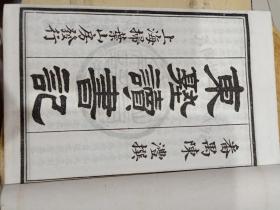 番禺陳澧撰
東塾讀書記
上海掃葉山房發行